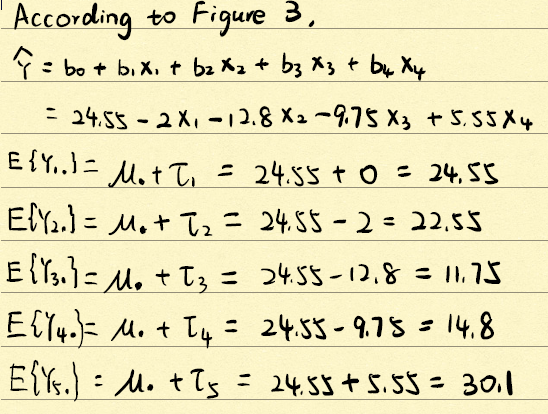 According to Figure 3,
Ŷ = b₀ + b₁X₁ + b₂X₂ + b₃X₃ + b₄X₄
= 24.55 - 2X₁ - 12.8X₂ - 9.75X₃ + 5.55X₄
E{Y₁.} = μ. + τ₁ = 24.55 + 0 = 24.55
E{Y₂.} = μ. + τ₂ = 24.55 - 2 = 22.55
E{Y₃.} = μ. + τ₃ = 24.55 - 12.8 = 11.75
E{Y₄.} = μ. + τ₄ = 24.55 - 9.75 = 14.8
E{Y₅.} = μ. + τ₅ = 24.55 + 5.55 = 30.1